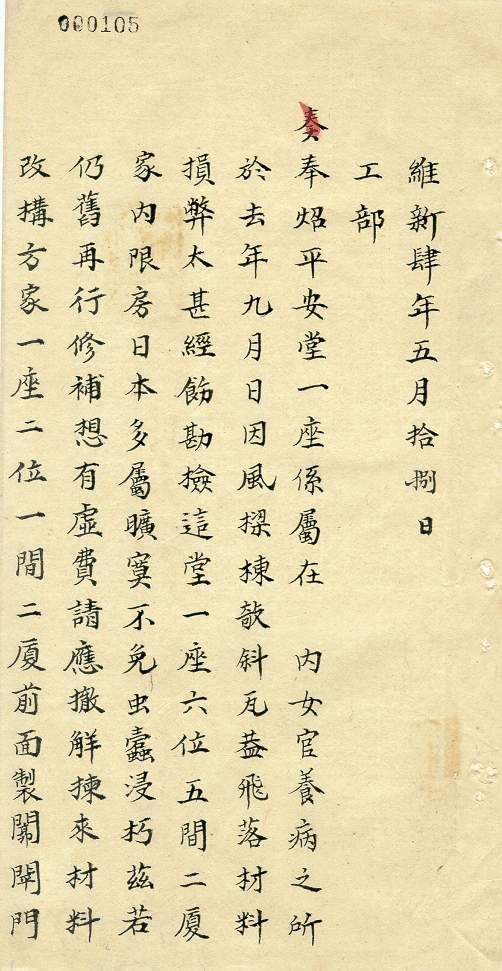 000105
維新肆年五月拾捌日
工部
奏奉炤平安堂一座係屬在 內女官養病之所
於去年九月日因風樑棟欹斜瓦葢飛落材料
損弊太甚經飭勘撿這堂一座六位五間二厦
家內限房日本多屬曠寞不免虫蠧浸朽茲若
仍舊再行修補想有虛費請應撤觧揀來材料
改構方家一座二位一間二厦前面製闢閈門